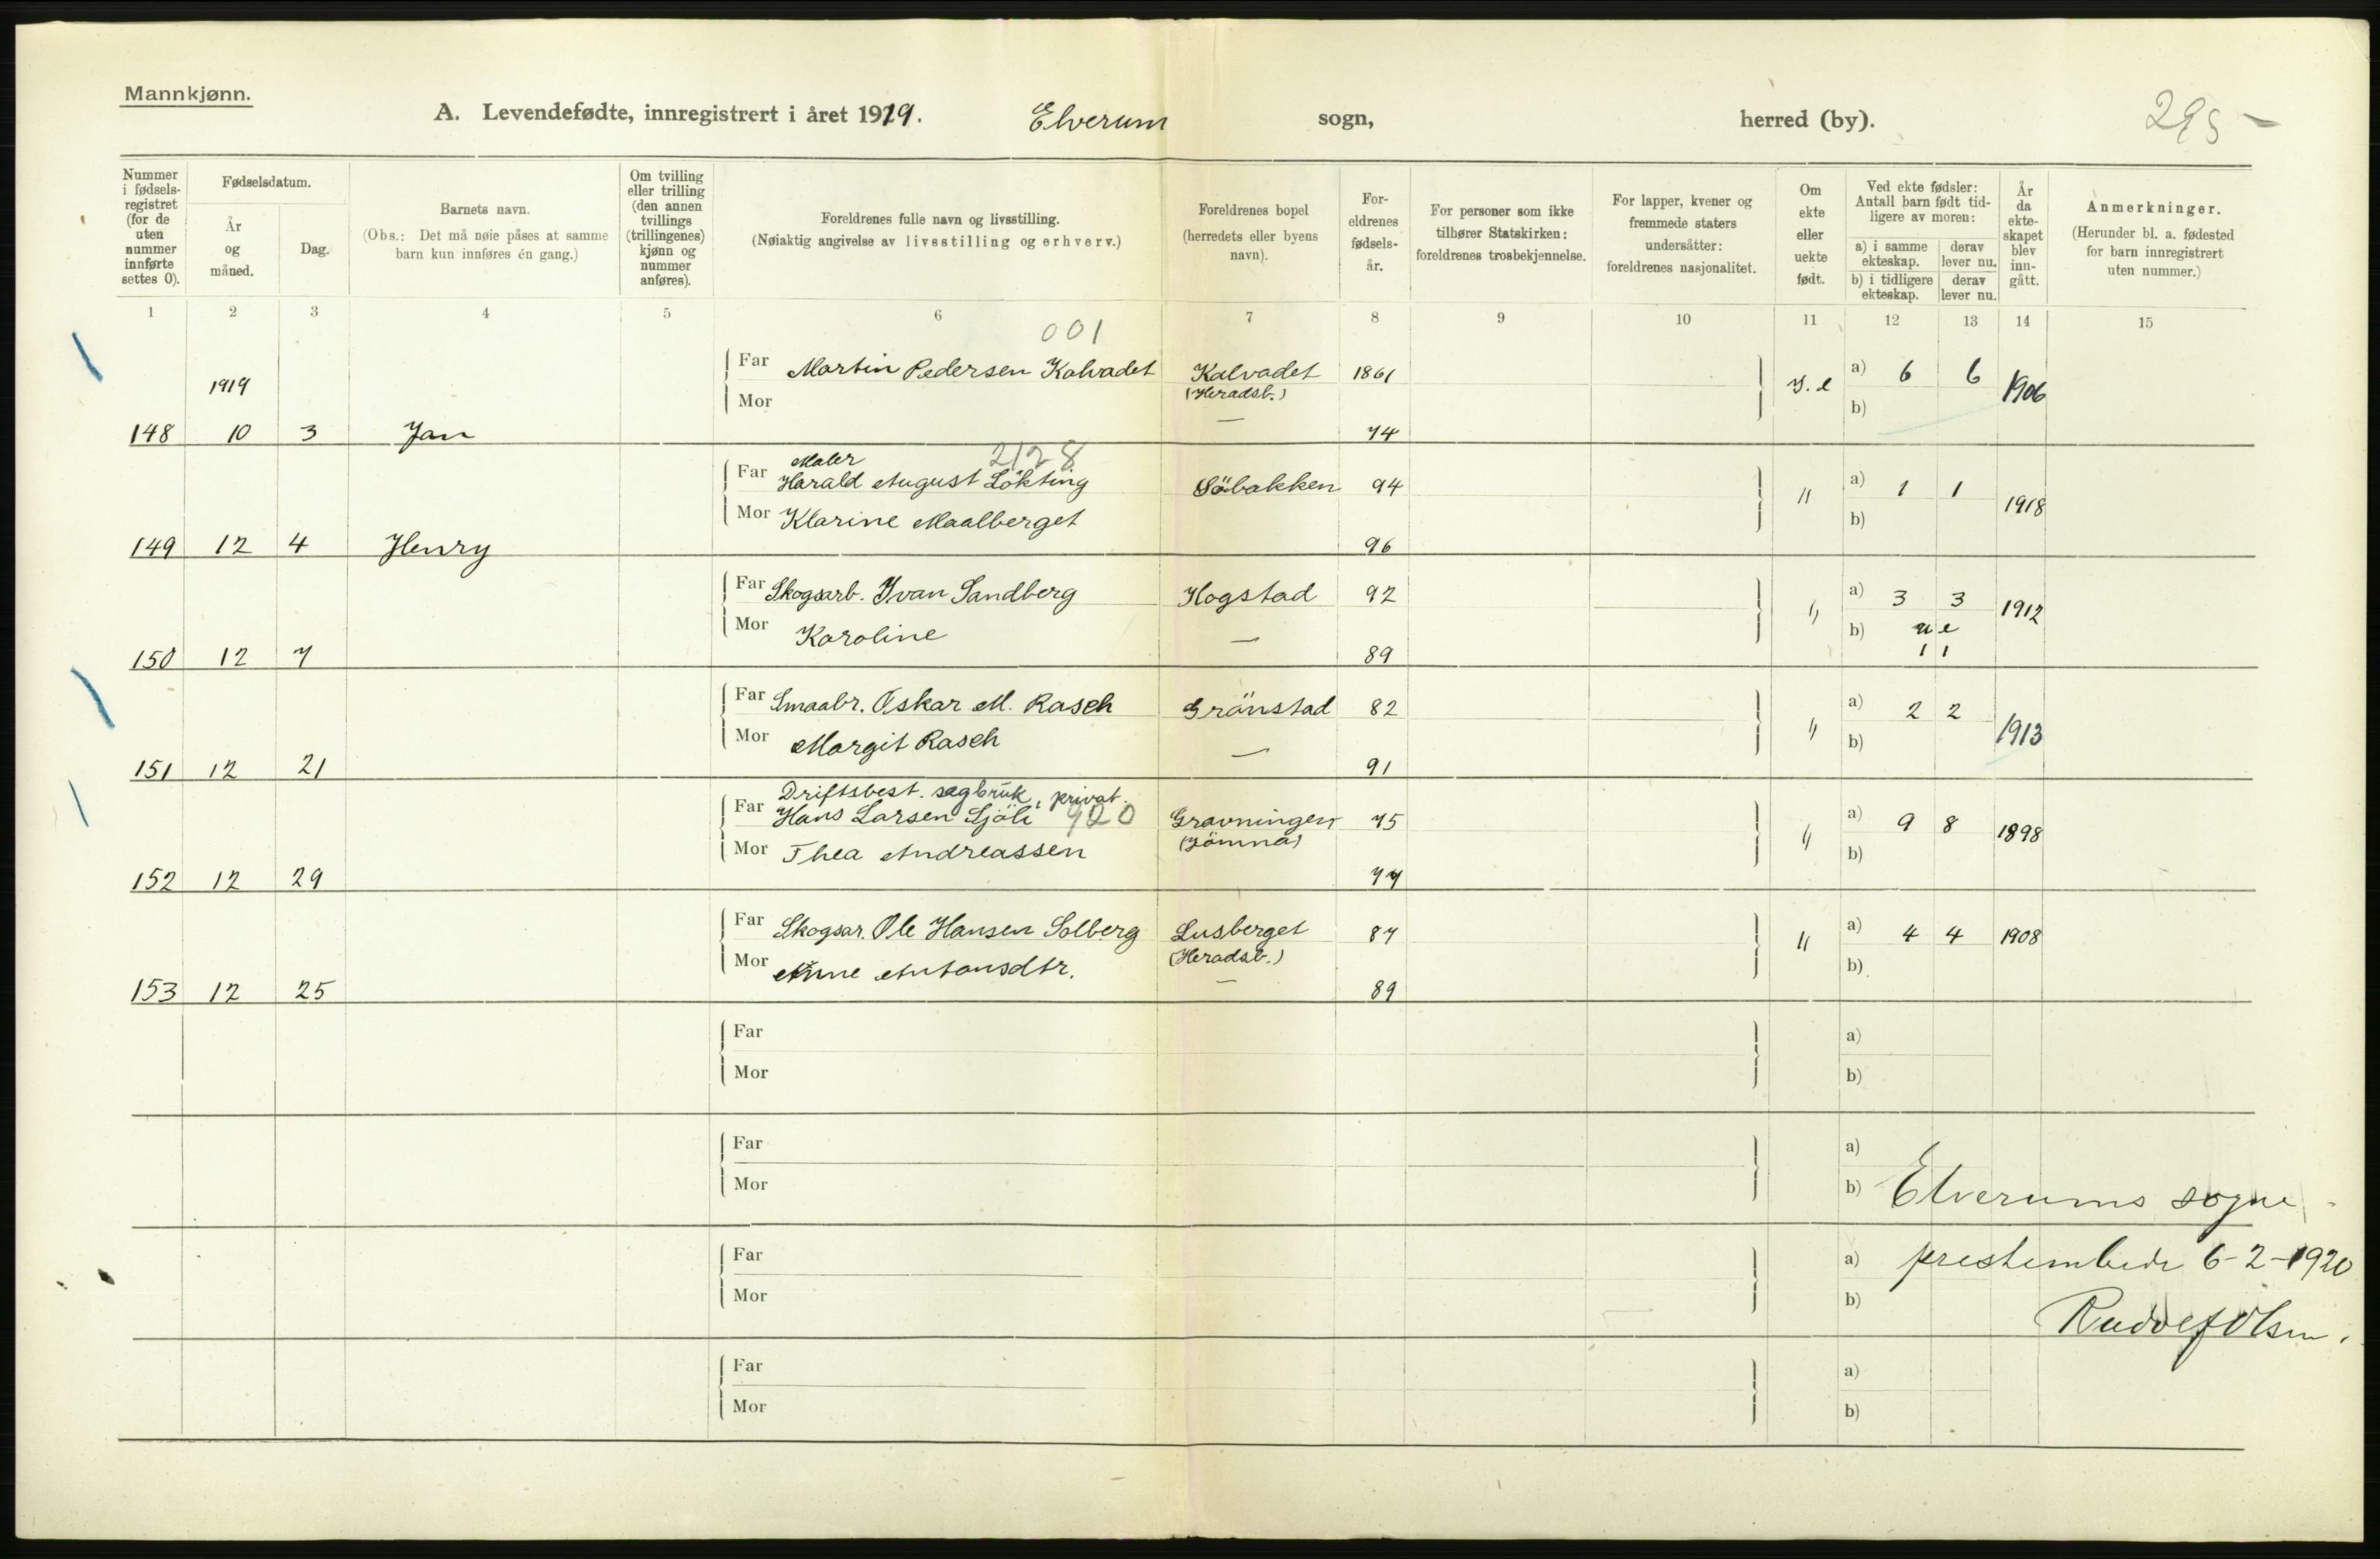 Mannkjønn.
A. Levendefødte, innregistrert i året 1919. Elverum sogn, herred (by). 295 -
Nummer i fødsels-registret (for de uten nummer innførte settes 0).
Fødselsdatum.
År og måned.
Dag.
Barnets navn.
(Obs.: Det må nøie påses at samme barn kun innføres én gang.)
Om tvilling eller trilling (den annen tvillings (trillingenes) kjønn og nummer anføres).
Foreldrenes fulle navn og livsstilling.
(Nøiaktig angivelse av livsstilling og erhverv.)
Foreldrenes bopel (herredets eller byens navn).
For-eldrenes fødsels-år.
For personer som ikke tilhører Statskirken: foreldrenes trosbekjennelse.
For lapper, kvener og fremmede staters undersåtter: foreldrenes nasjonalitet.
Om ekte eller uekte født.
Ved ekte fødsler: Antall barn født tid-ligere av moren:
a) i samme ekteskap. derav lever nu.
b) i tidligere ekteskap. derav lever nu.
År da ekte-skapet blev inn-gått.
Anmerkninger.
(Herunder bl. a. fødested for barn innregistrert uten nummer.)
1 2 3 4 5 6 7 8 9 10 11 12 13 14 15
001
Far Martin Pedersen Kalvadet Kalvadet 1861 a) 6 6 1906
1919
(Heradsb.)
Mor — b)
148 10 3 Jan 74
Maler 2128
Far Harald August Lökting Söbakken 94 " a) 1 1 1918
Mor Klarine Maalberget b)
149 12 4 Henry 96
Far Skogsarb. Ivan Sandberg Hogstad 92 " a) 3 3 1912
Mor Karoline — b) u e
1 1
150 12 7 89
Far Smaabr. Oskar M. Rasch Grönstad 82 " a) 2 2 1913
Mor Margit Rasch — b)
151 12 21 91
Driftsbest. sagbruk, privat.
Far Hans Larsen Sjöli 920 Gravningen 75 " a) 9 8 1898
(Jömna)
Mor Thea Andreassen b)
152 12 29 77
Far Skogsar. Ole Hansen Solberg Lusberget 87 " a) 4 4 1908
(Heradsb.)
Mor Anne Antonsdtr. — b)
153 12 25 89
Far a)
Mor b)
Far a)
Mor b) Elverums sogne
Far a) prestembede 6-2-1920
Mor b)
Rudolf Olsen.
Far a)
Mor b)